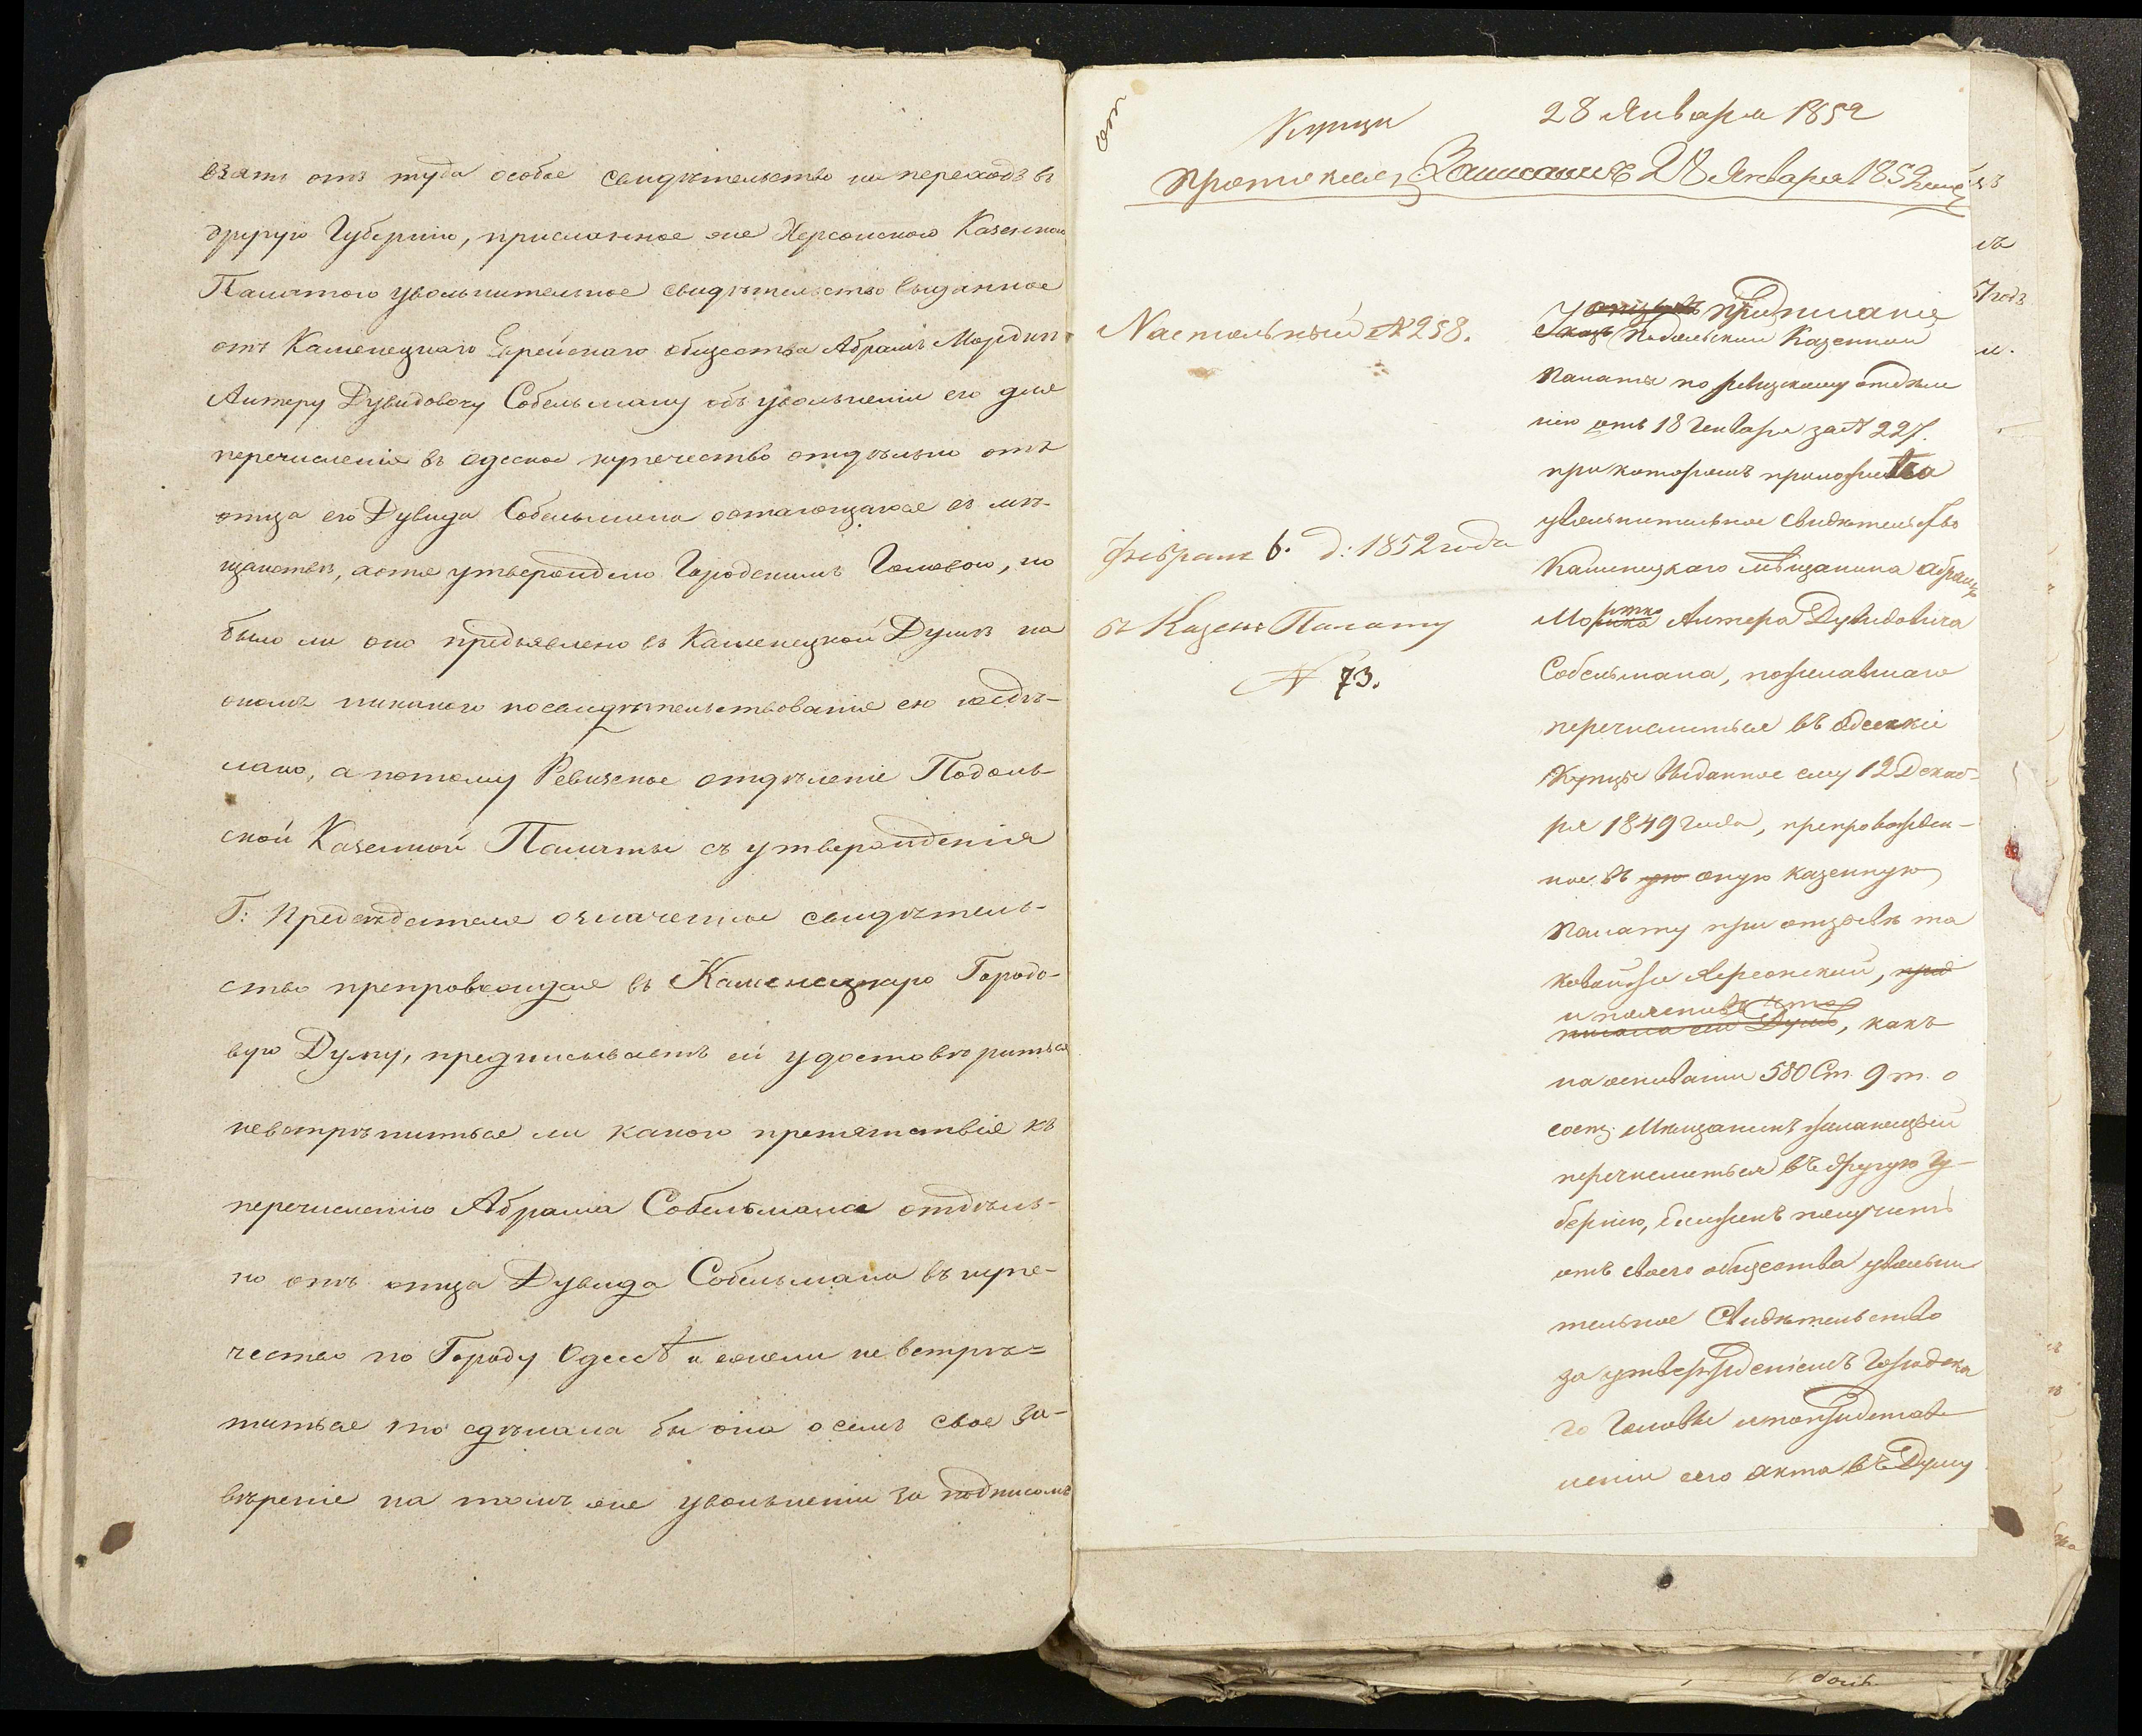 взять отъ туда особое свидѣтельство на переходъ въ
другую Губернію, присланное же Херсонскою Казенною
Палатою увольнительное свидѣтельство выданное
отъ Каменецкаго Еврейскаго общества Абрамъ Мордку
Антеру Дувидовичу Собельману объ увольненіи его для
перечисленія въ Одеское купечество отдѣльно отъ
отца его Дувида Собельмана остающагося въ мѣ-
щанствѣ, хотя утверждено Городскимъ Головою, но
было ли оно предъявлено въ Каменецкой Думѣ на
ономъ никакого посвидѣтельствованія ею несдѣ-
лано, а потому Ревизское отдѣленіе Подоль-
ской Казенной Палаты съ утвержденія
Г: Предсѣдателя означенное свидѣтель-
ство препровождая въ Каменецкую Городо-
вую Думу, предписываетъ ей удостовѣриться
невстрѣтиться ли какого препятствія къ
перечисленію Абрама Собельмана отдѣль-
но отъ отца Дувида Собельмана въ купе-
чество по Городу Одессѣ и ежели не встрѣ=
титься то сдѣлала бы она о семъ свое за-
вѣреніе на томъ же увольненіи за подписомъ
Купцы
28 Января 1852
протоколъ Записанъ 28 Января 1852
Настольный № 258.
предписаніе
Указъ Подольской Казенной
Палаты по ревизскому отдѣле
нію отъ 18 Генваря за № 227.
при которомъ приложено
увольнительное свидѣтельство
Февраля 6. д: 1852 года
Каменецкаго мѣщанина Абрама
въ Казен: Палату
Мортко Антера Дувидовича
№ 73.
Собельмана, пожелавшаго
перечислиться въ Одескіе
Купцы выданное ему 12 Декаб-
ря 1849 года, препровожден-
ное въ оную казенную
Палату при отзывѣ та
ковой же Херсонской,
и пояснивъ что
Думѣ, какъ
на основаніи 580 Ст. 9 т. о
сост: Мѣщанинъ желающій
перечислиться въ другую Гу-
бернію, долженъ получить
отъ своего общества увольни
тельное свидѣтельство
за утвержденіемъ Городска
го Головы
леніи сего акта въ Думу